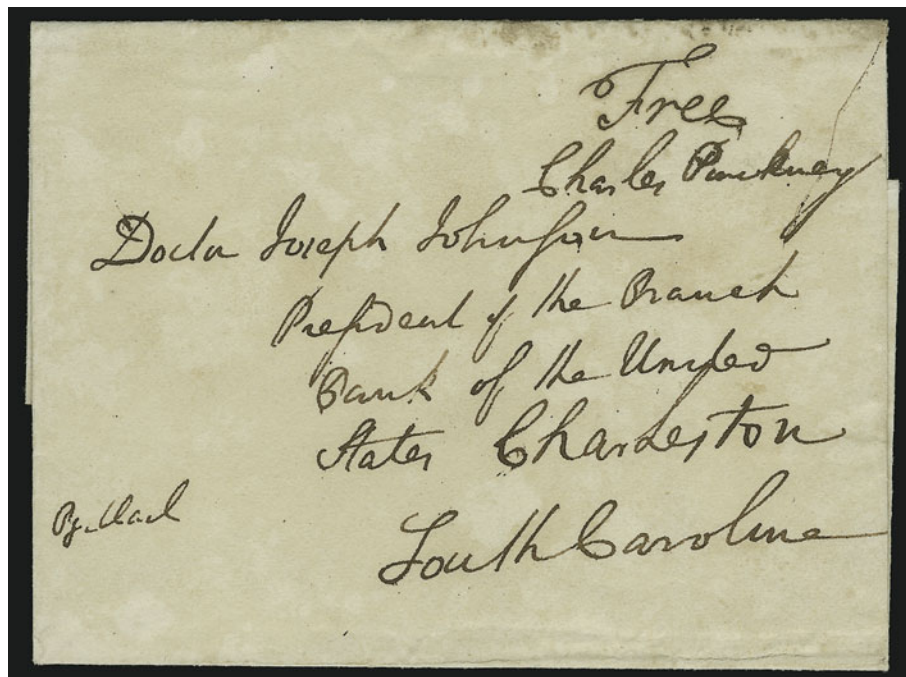 Free
Charles Pinckney
Doctor Joseph Johnson
President of the Branch
Bank of the United
States Charleston
South Carolina
By Mail